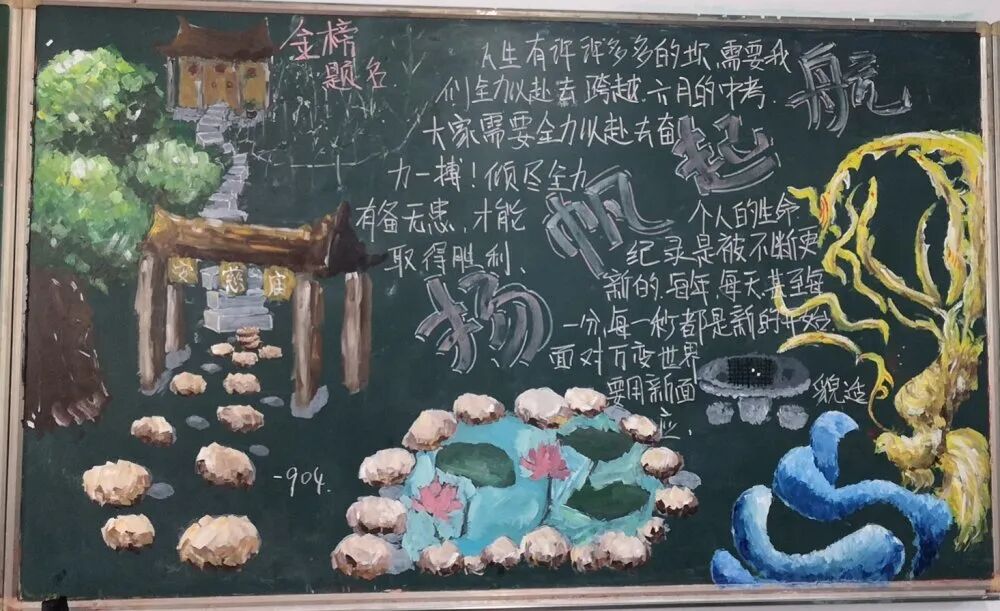 金榜
题名
人生有许许多多的坎,需要我
们全力以赴去跨越.六月的中考.
大家需要全力以赴去奋
力一搏!倾尽全力
有备无患,才能
取得胜利、
扬帆起航
个人的生命
纪录是被不断更
新的,每年,每天,甚至每
一分,每一秒都是新的开始
面对万变世界
要用新面貌适
应、
-904.